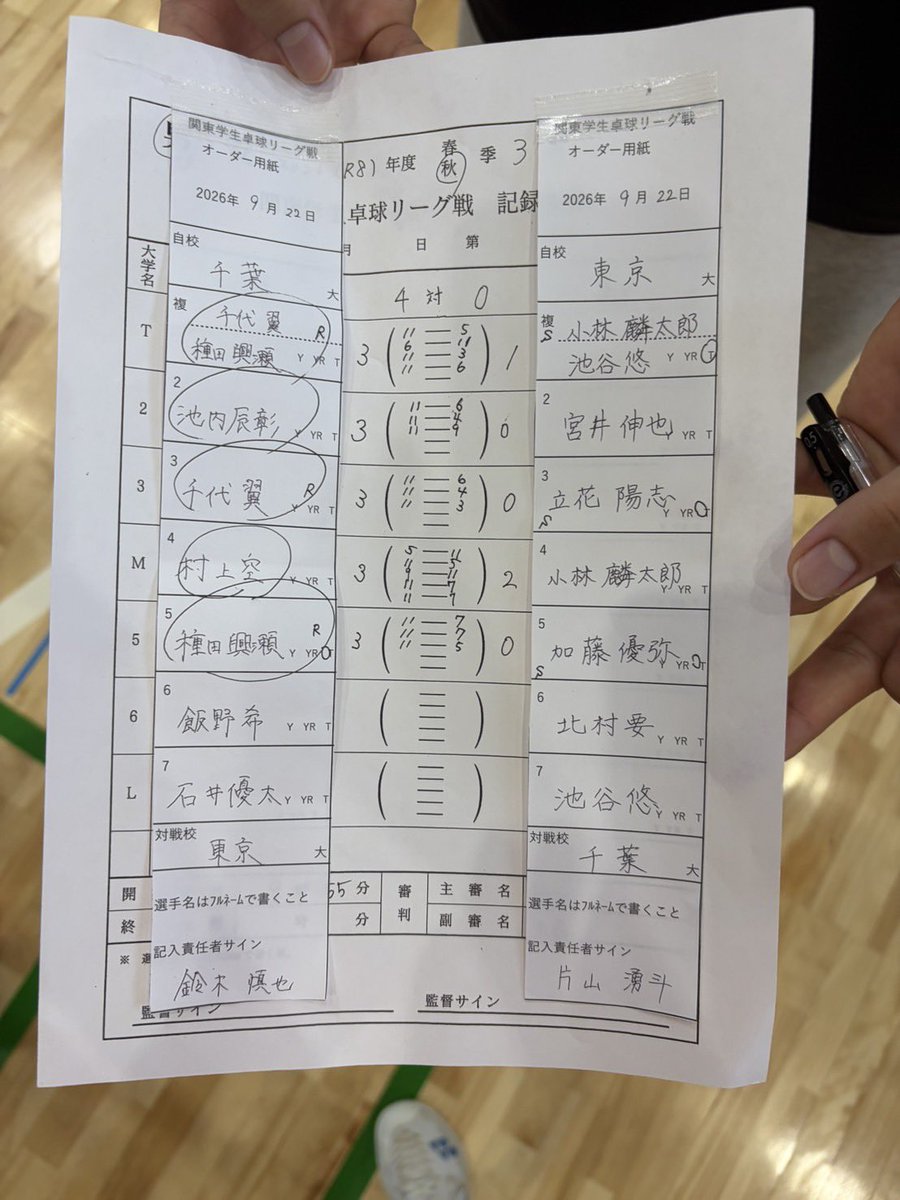 関東学生卓球リーグ戦
オーダー用紙
2026年 9月 22日
自校
千葉 大
複
千代 翼 R
種田 興瀬 Y YR T
2
池内辰彰 Y YR T
3
千代 翼 R Y YR T
4
村上空 Y YR T
5
種田 興瀬 R Y YR T
6
飯野希 Y YR T
7
石井優太 Y YR T
対戦校
東京 大
選手名はﾌﾙﾈｰﾑで書くこと
記入責任者サイン
鈴木 慎也
R8) 年度 春 秋 季 3
卓球リーグ戦 記録
月 日 第
4 対 0
大学名
T
3 ( 11 — 5 ) 1
6 — 11
11 — 3
11 — 6
2
3 ( 11 — 6 ) 0
11 — 4
11 — 9
3
3 ( 11 — 6 ) 0
11 — 4
11 — 3
M
3 ( 5 — 11 ) 2
11 — 7
11 — 7
5
3 ( 11 — 7 ) 0
11 — 7
11 — 5
6
L
開
55分
終
分
審判
主審名
副審名
監督サイン
監督サイン
関東学生卓球リーグ戦
オーダー用紙
2026年 9月 22日
自校
東京 大
複
S 小林 麟太郎
池谷 悠 Y YR T
2
宮井 伸也 Y YR T
3
S 立花 陽志 Y YR T
4
小林 麟太郎 Y YR T
5
S 加藤 優弥 Y YR T
6
北村 要 Y YR T
7
池谷 悠 Y YR T
対戦校
千葉 大
選手名はﾌﾙﾈｰﾑで書くこと
記入責任者サイン
片山 湧斗